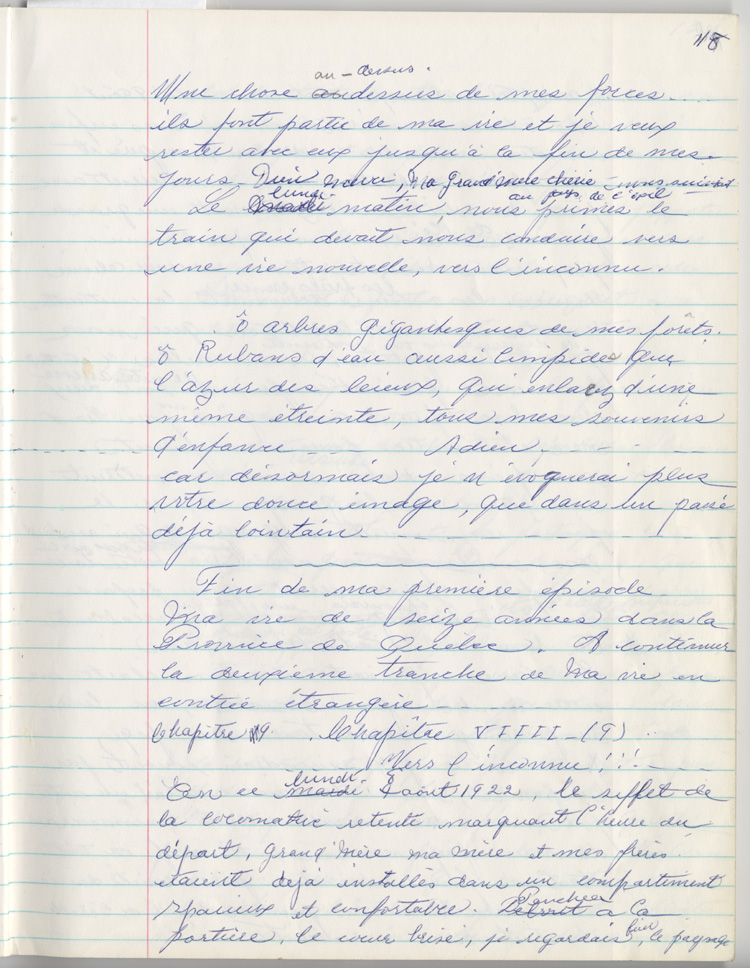 118
au-dessus.
Une chose audessus de mes forces....
ils font partie de ma vie et je veux
rester avec eux jusqu'à la fin de mes
jours. Dieu merci, Ma Grand'mère chérie nous suivait
lundi au pays de l'épel
Le matin, nous primes le
train qui devait nous conduire vers
une vie nouvelle, vers l'inconnu.
. Ô arbres gigantesques de mes forêts.
Ô Rubans d'eau aussi limpides que
l'azur des cieux, qui enlacez d'une
même étreinte, tous mes souvenirs
d'enfance ___ Adieu, _ _ _
car désormais je n'évoquerai plus
votre douce image, que dans un passé
déjà lointain. _ _ _ _
Fin de ma première épisode
Ma vie de seize années dans la
Province de Québec. A continuer
la deuxième tranche de Ma vie en
contrée étrangère _ _ _
Chapitre 9. Chapitre VIIII-(9) ..
Vers l'inconnu!!! _ _
lundi
En ce mardi 8 août 1922, le sifflet de
la locomatric retente marquant l'heure du
départ, Grand'Mère ma mère et mes frères
étaient déjà installés dans un compartiment
Penchée
spacieux et confortable. Debout a la
portière, le cœur brisé, je regardais fuir le paysage